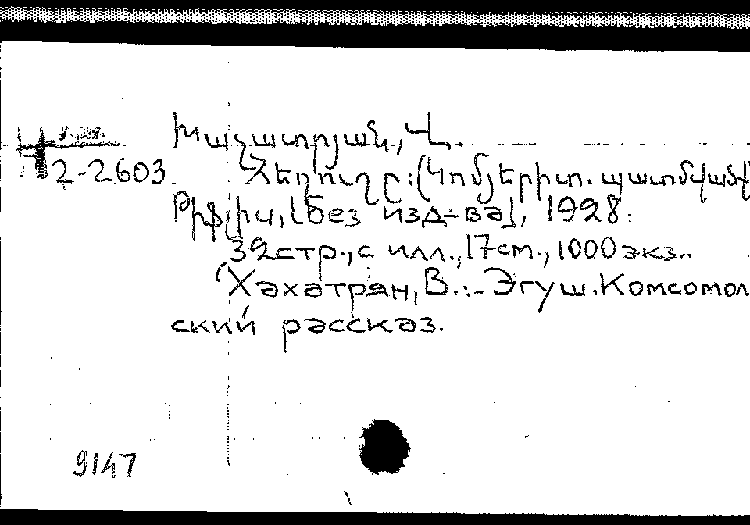 Խաչատրյան, Վ.
2-2603
Հեղուղը: (Կոմյերիտ. պատմված
Թիֆլիս, [без изд-ва], 1928.
32 стр., с илл., 17 см., 1000 экз..
(Хачатрян, В.:- Эгуш. Комсомол
ский рассказ.
9147